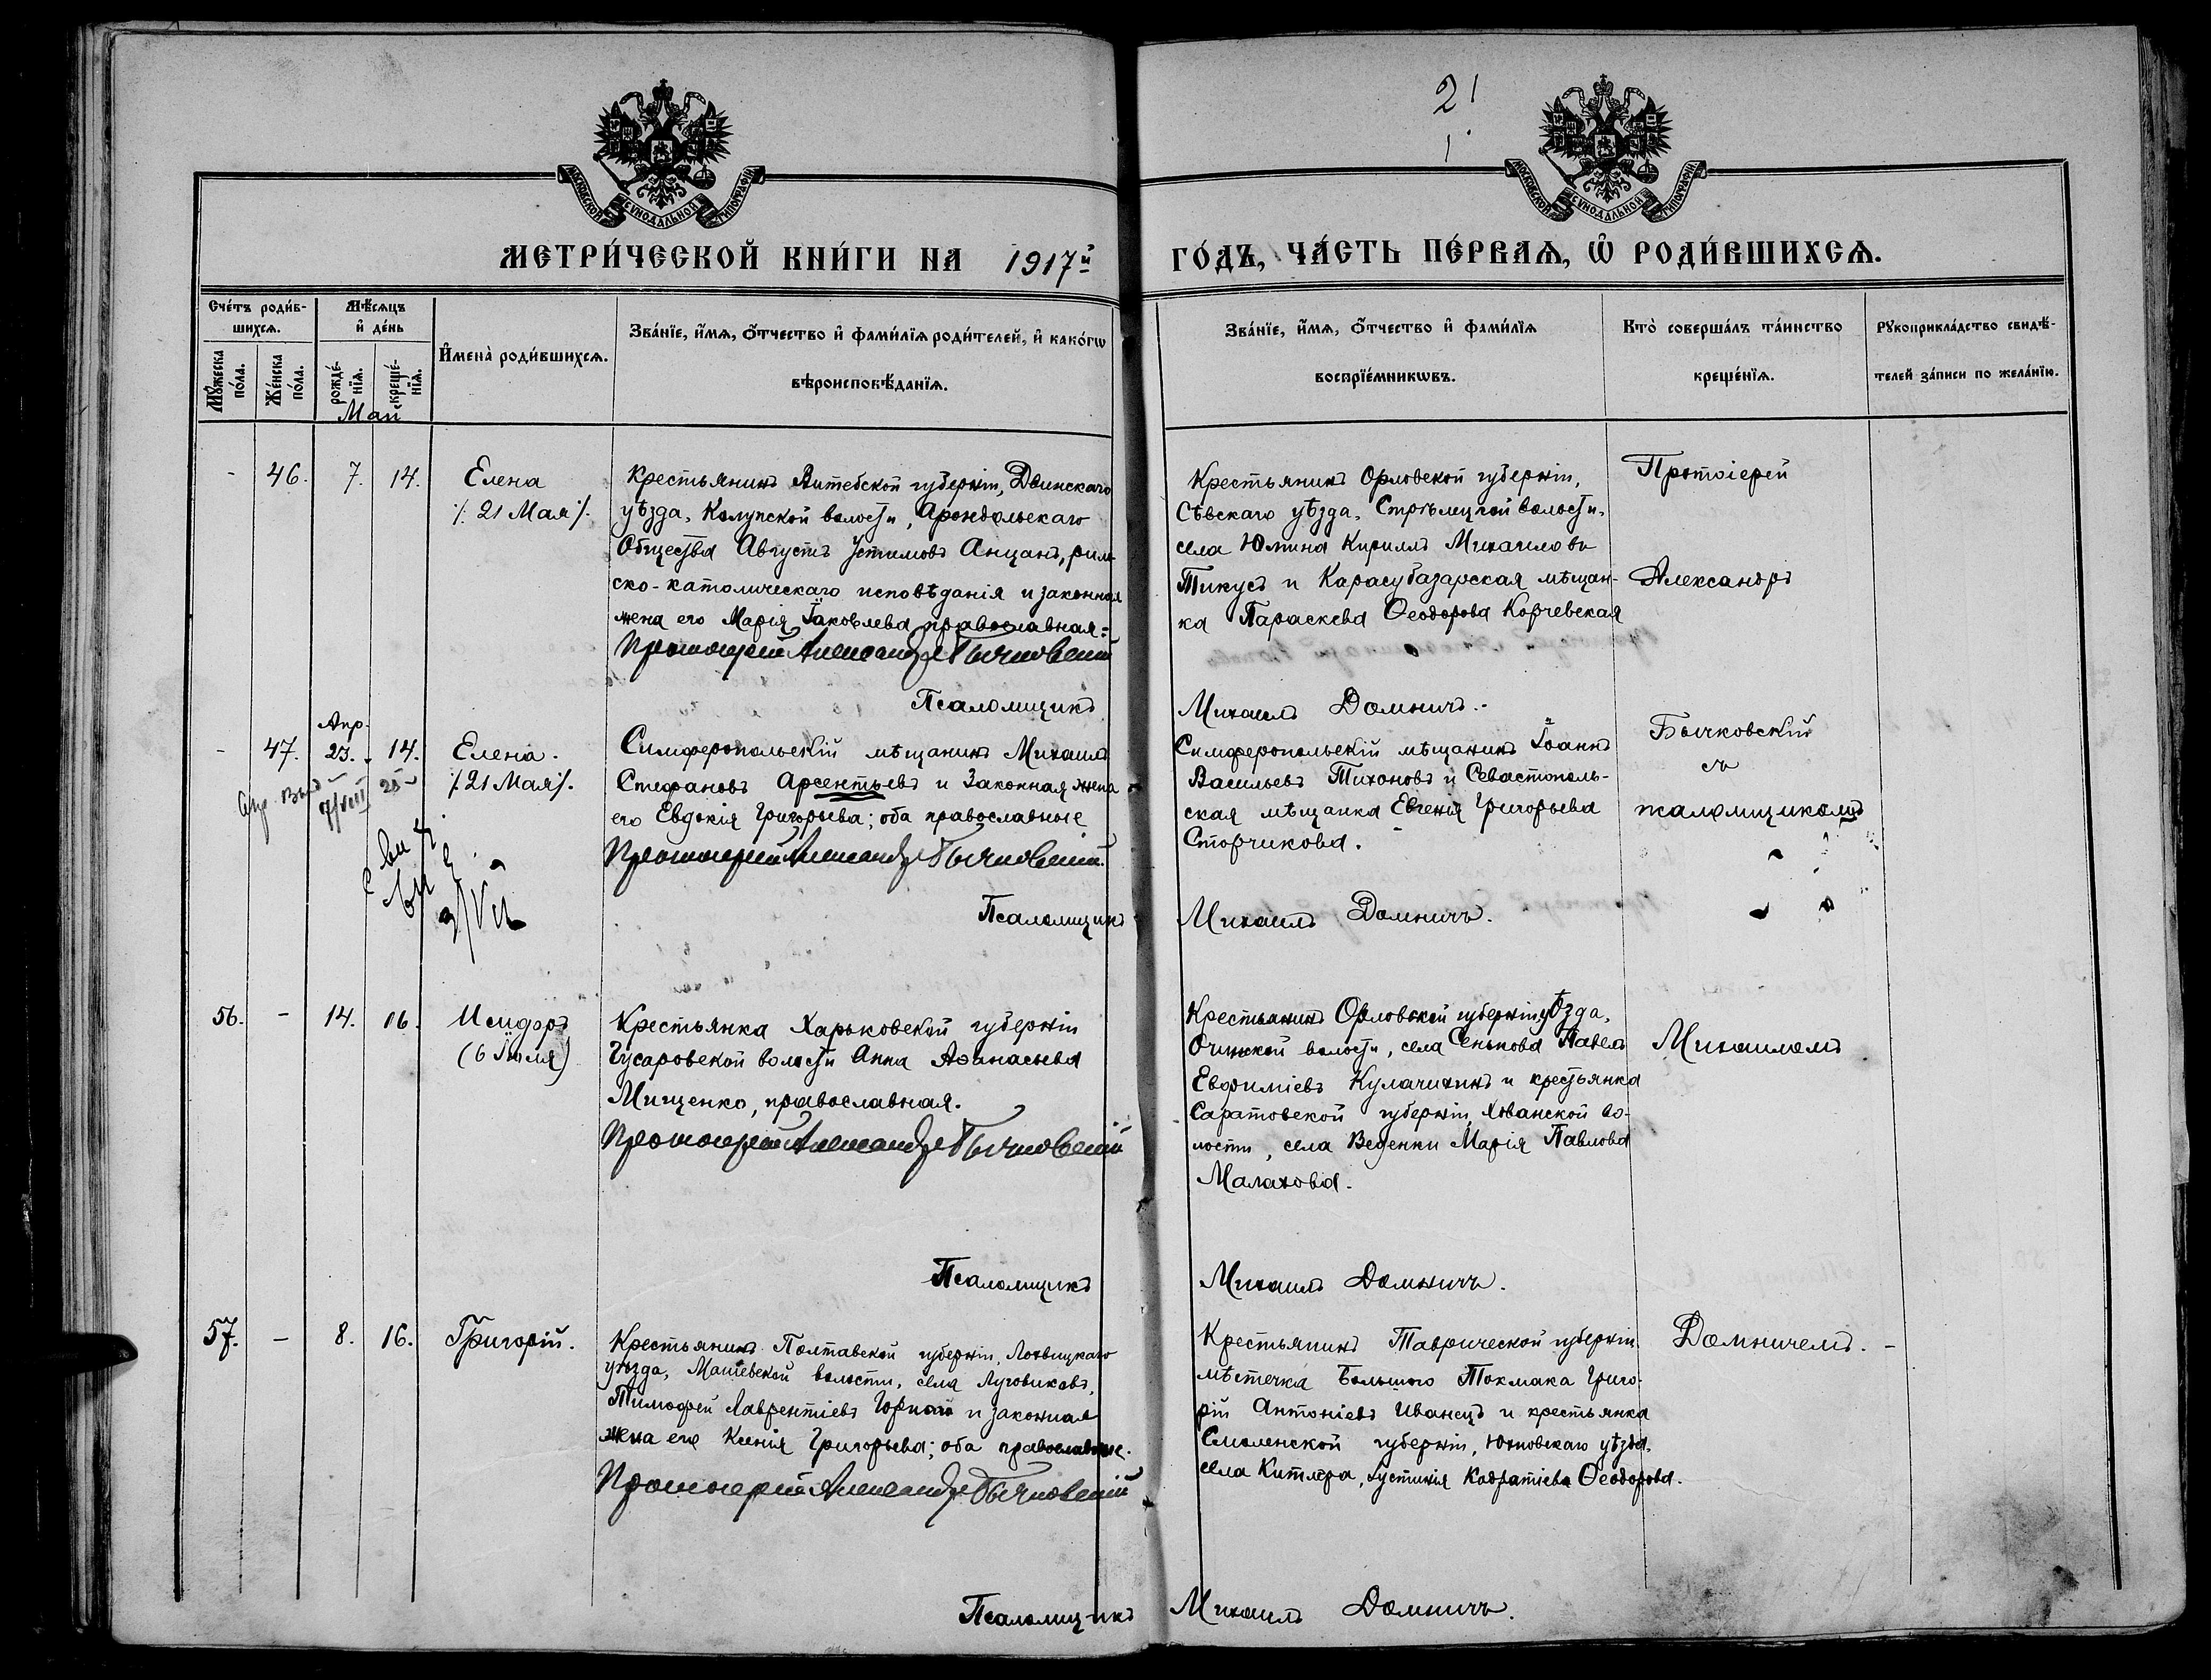 21
1
МОСКОВСКОЙ СѴНОДАЛЬНОЙ ТИПОГРАФІИ
МОСКОВСКОЙ СѴНОДАЛЬНОЙ ТИПОГРАФІИ
МЕТРИ́ЧЕСКОЙ КНИ́ГИ НА 1917й ГО́ДЪ, ЧА́СТЬ ПЕ́РВАѦ, Ѿ РОДИ́ВШИХСѦ.
Сче́тъ роди́в-
шихсѧ.
Мꙋ́жеска
по́ла.
Же́нска
по́ла.
Мѣ́сѧцъ
и҆ де́нь
рожде́-
нїѧ.
креще́-
нїѧ.
Май
И҆мена̀ роди́вшихсѧ.
Зва́нїе, и҆́мѧ, ѻ҆́тчество и҆ фами́лїѧ роди́телей, и҆ како́гѡ
вѣроисповѣ́данїѧ.
Зва́нїе, и҆́мѧ, ѻ҆́тчество и҆ фами́лїѧ
воспрїе́мникѡвъ.
Кто̀ соверша́лъ та́инство
креще́нїѧ.
Рꙋкоприкла́дство свидѣ́-
телей за́писи по жела́нїю.
- 46. 7. 14. Елена
/. 21 Мая/.
Крестьянинъ Витебской губерніи, Двинскаго
уѣзда, Колупской волости, Арондольскаго
Общества Августъ Устимовъ Анцанъ, рим-
ско-католическаго исповѣданія и законная
жена его Марія Іаковлева православная.
Протоіерей Александръ Бычковскій
Псаломщикъ
Крестьянинъ Орловской губерніи,
Сѣвскаго уѣзда, Стрѣлецкой волости,
села Юшина Кириллъ Михаиловъ
Тикусъ и Карасубазарская мѣщан-
ка Параскева Ѳеодорова Корчевская
Михаилъ Домничъ.
Протоіерей
Александръ
Апр.
- 47. 23. 14. Елена.
/. 21 Мая/.
Симферопольскій мѣщанинъ Михаилъ
Стефановъ Арсентьевъ и законная жена
его Евдокія Григорьева; оба православные
Протоіерей Александръ Бычковскій.
Псаломщикъ
Симферопольскій мѣщанинъ Іоаннъ
Васильевъ Тихоновъ и Севастополь-
ская мѣщанка Евгенія Григорьева
Сторчикова.
Михаилъ Домничъ.
Бычковскій
съ
псаломщикомъ
56. - 14. 16. Исидоръ
(6 Іюля)
Крестьянка Харьковской губерніи
Гусаровской волости Анна Аѳанасьева
Мищенко, православная.
Протоіерей Александръ Бычковскій
Псаломщикъ
Крестьянинъ Орловской губерніи уѣзда,
волости, села Сенькова Павелъ
Евфиміевъ Кулачихинъ и крестьянка
Саратовской губерніи, Хованской во-
лости, села Веденки Марія Павлова
Малахова.
Михаилъ Домничъ.
Михаиломъ
57. - 8. 16. Григорій.
Крестьянинъ Полтавской губерніи, Лохвицкаго
уѣзда, волости, села Луговиковъ,
Тимофей Лаврентіевъ и законная
жена его Ксенія Григорьева; оба православные.
Протоіерей Александръ Бычковскій
Псаломщикъ
Крестьянинъ Таврической губерніи
мѣстечка Большого Токмака Григо-
рій Антоніевъ Иванецъ и крестьянка
Смоленской губерніи, Юхновскаго уѣзда,
села Іустинія Ѳеодорова.
Михаилъ Домничъ.
Домничемъ. -